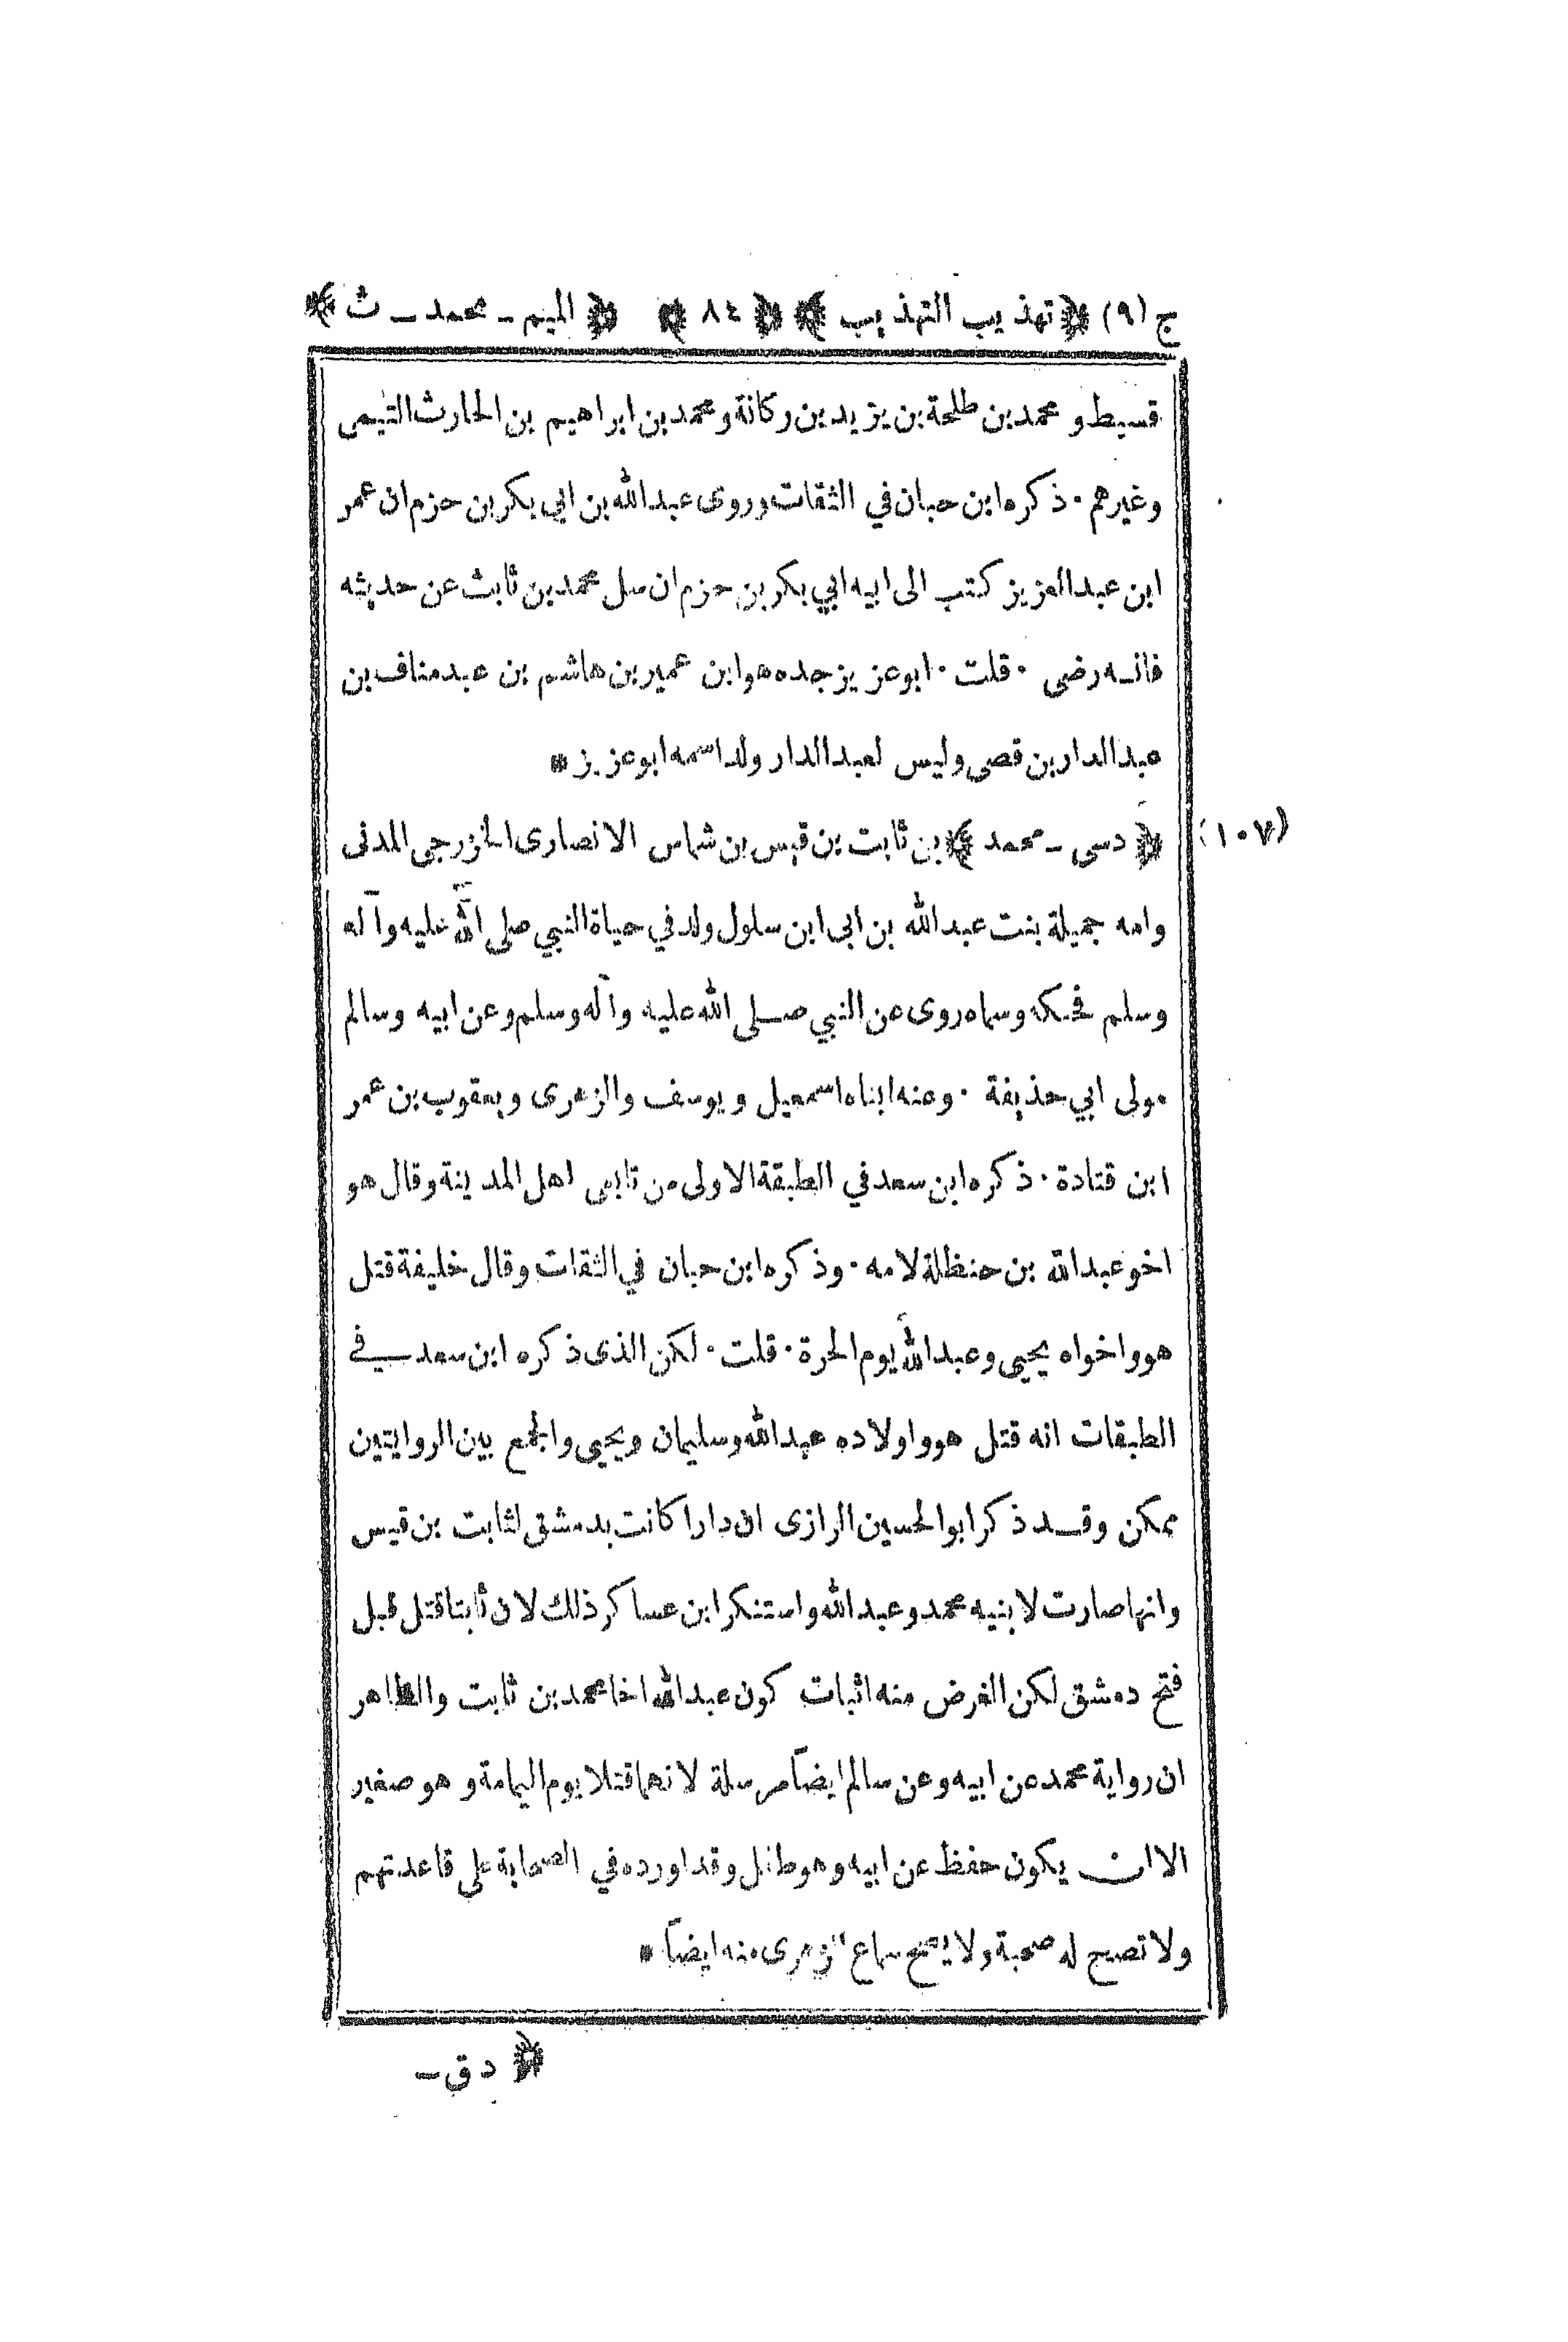 ج (٩) ﴿تهذيب التهذيب﴾ ﴿٨٤﴾ ﴿الميم ـ محمد ـ ث﴾
قسيط و محمد بن طلحة بن يزيد بن ركانة و محمد بن ابراهيم بن الحارث التيمى
وغيرهم ٠ ذكره ابن حبان في الثقات وروى عبد الله بن ابي بكر بن حزم ان عمر
ابن عبد العزيز كتب الى ابيه ابي بكر بن حزم ان سل محمد بن ثابت عن حديثه
فانه رضى ٠ قلت ٠ ابو عزيز جده هو ابن عمير بن هاشم بن عبد مناف بن
عبد الدار بن قصى وليس لعبد الدار ولد اسمه ابو عزيز *
(١٠٧) ﴿دسى ـ محمد﴾ بن ثابت بن قيس بن شماس الانصارى الخزرجى المدنى
وامه جميلة بنت عبد الله بن ابى ابن سلول ولد في حياة النبي صلى الله عليه وآله
وسلم فحنكه وسماه روى عن النبي صلى الله عليه وآله وسلم وعن ابيه وسالم
مولى ابي حذيفة ٠ وعنه ابناه اسمعيل ويوسف والزهرى ويعقوب بن عمر
ابن قتادة ٠ ذكره ابن سعد في الطبقة الاولى من تابعى اهل المدينة وقال هو
اخو عبد الله بن حنظلة لامه ٠ وذكره ابن حبان في الثقات وقال خليفة قتل
هو واخواه يحيى وعبد الله يوم الحرة ٠ قلت ٠ لكن الذى ذكره ابن سعد في
الطبقات انه قتل هو واولاده عبد الله وسليمان ويحيى والجمع بين الروايتين
ممكن وقد ذكر ابو الحسين الرازى ان دارا كانت بدمشق لثابت بن قيس
وانها صارت لابنيه محمد وعبد الله واستنكر ابن عساكر ذلك لان ثابتا قتل قبل
فتح دمشق لكن الغرض منه اثبات كون عبد الله اخا محمد بن ثابت والظاهر
ان رواية محمد عن ابيه وعن سالم ايضاً مرسلة لانهما قتلا يوم اليمامة وهو صغير
الا ان يكون حفظ عن ابيه وهو طفل وقد اورده في الصحابة على قاعدتهم
ولا تصح له صحبة ولا يصح سماع الزهرى منه ايضاً *
﴿ د ق ـ